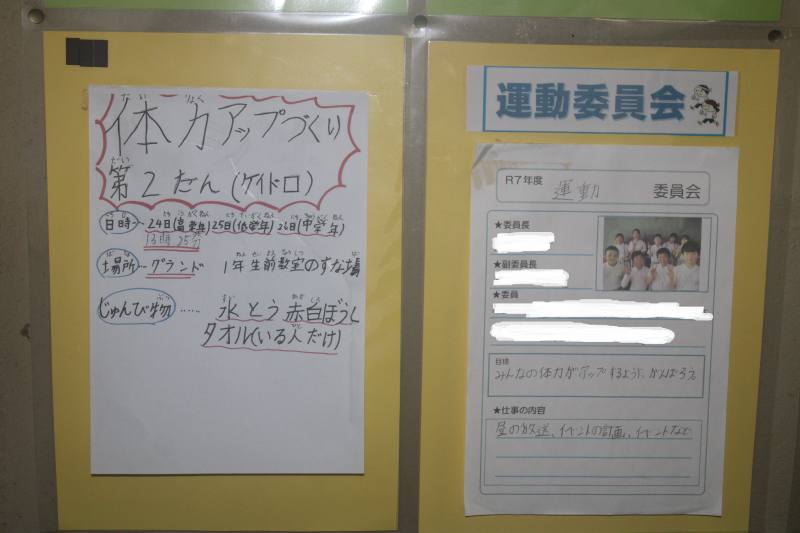 体力アップづくり
第2だん(ケイドロ)
日時… 24日(高学年) 25日(低学年) 26日(中学年)
13時25分
場所… グランド 1年生前教室のすな場
じゅんび物…… 水とう 赤白ぼうし
タオル(いる人だけ)
運動委員会
R7年度 運動 委員会
★委員長
★副委員長
★委員
目標
みんなの体力がアップするように、がんばろう。
★仕事の内容
昼の放送、イベントの計画、イベントなど